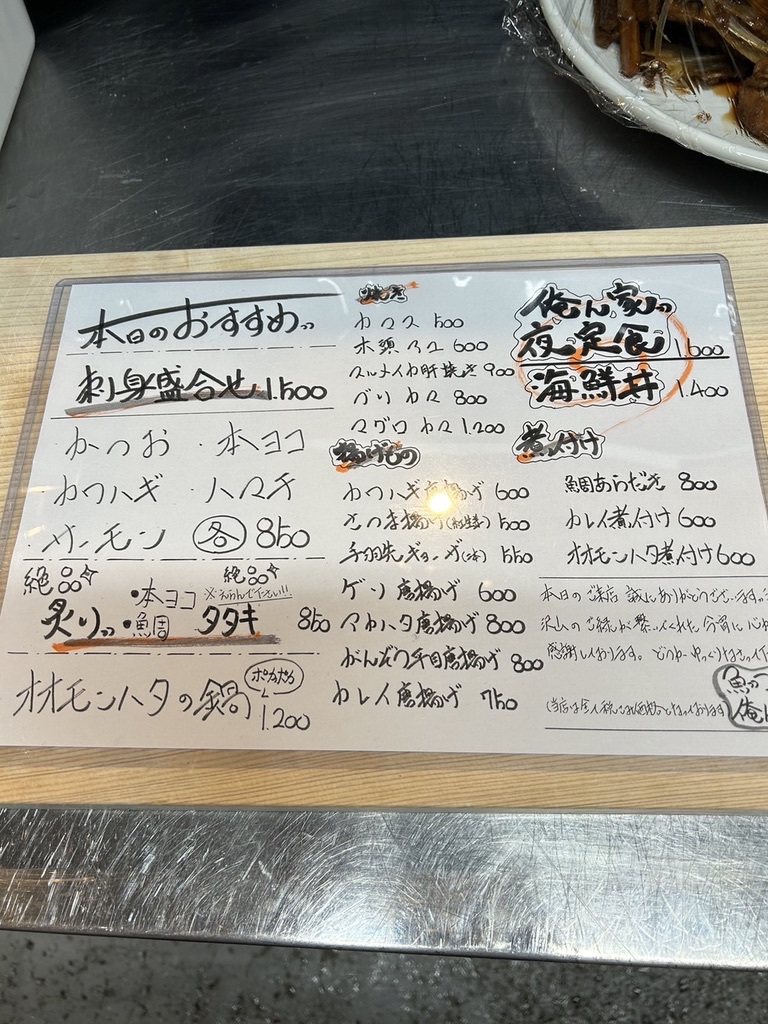 本日のおすすめ
刺身盛合せ 1.500
・かつお ・本ヨコ
・カワハギ ・ハマチ
・サーモン 各 850
絶品 絶品
※えらんで下さい!!!
炙り ・本ヨコ ・魚鯛 タタキ 850
ポカポカ
オオモンハタの鍋 1.200
焼き
カマス 500
木頭 600
スルメイカ肝焼き 900
ブリカマ 800
マグロカマ 1.200
揚げもの
カワハギ唐揚げ 600
さつま揚げ 500
手羽先ギョーザ(2本) 550
ゲソ唐揚げ 600
マハタ唐揚げ 800
がんぞう平目唐揚げ 800
カレイ唐揚げ 750
俺ん家の
夜定食 1.600
海鮮丼 1.400
煮付け
鯛あらだき 800
カレイ煮付け 600
オオモンハタ煮付け 600
本日のご来店 誠にありがとうございます。
沢山のご縁が繋いでくれた今宵に心から
感謝しております。どうか ゆっくり
魚の
俺ん